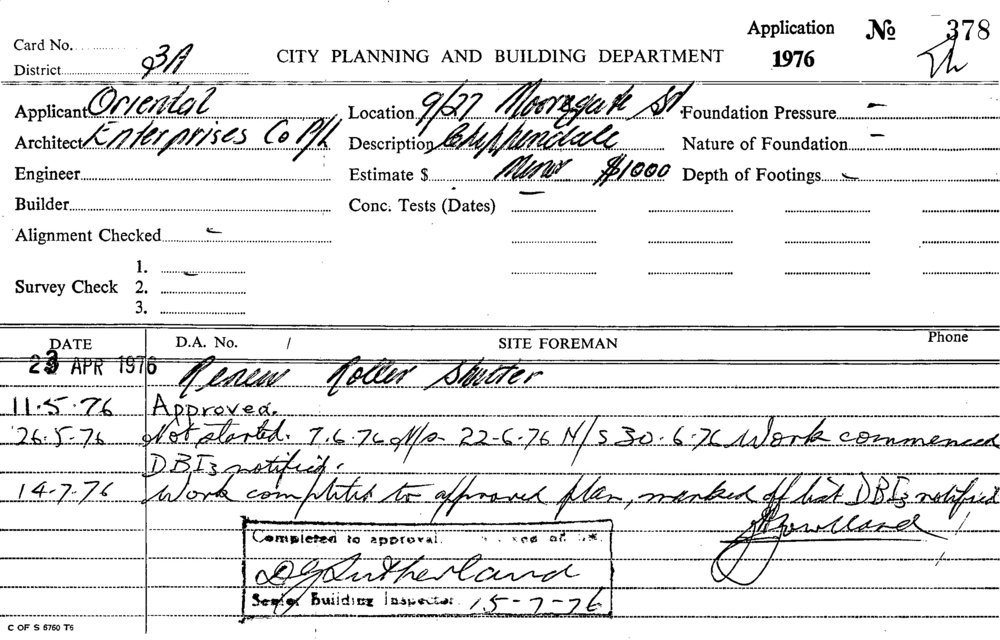 Application № 378
Card No.
CITY PLANNING AND BUILDING DEPARTMENT 1976
District 3A
Applicant Oriental Location 9/27 Moorgate St Foundation Pressure –
Architect Enterprises Co P/L Description Chippendale Nature of Foundation –
Engineer Estimate $ Minor $1000 Depth of Footings –
Builder Conc. Tests (Dates) –
Alignment Checked –
1.
Survey Check 2.
3.
DATE D.A. No. / SITE FOREMAN Phone
23 APR 1976 Renew Roller Shutter
11.5.76 Approved.
26.5.76 Not started. 7.6.76 N/s 22-6.76 N/S 30.6.76 Work commenced
DBI3 notified.
14.7.76 Work completed to approved plan, marked off list DBI3 notified
Completed to approval.
D J Sutherland
Senior Building Inspector 15-7-76
C OF S 6760 T6